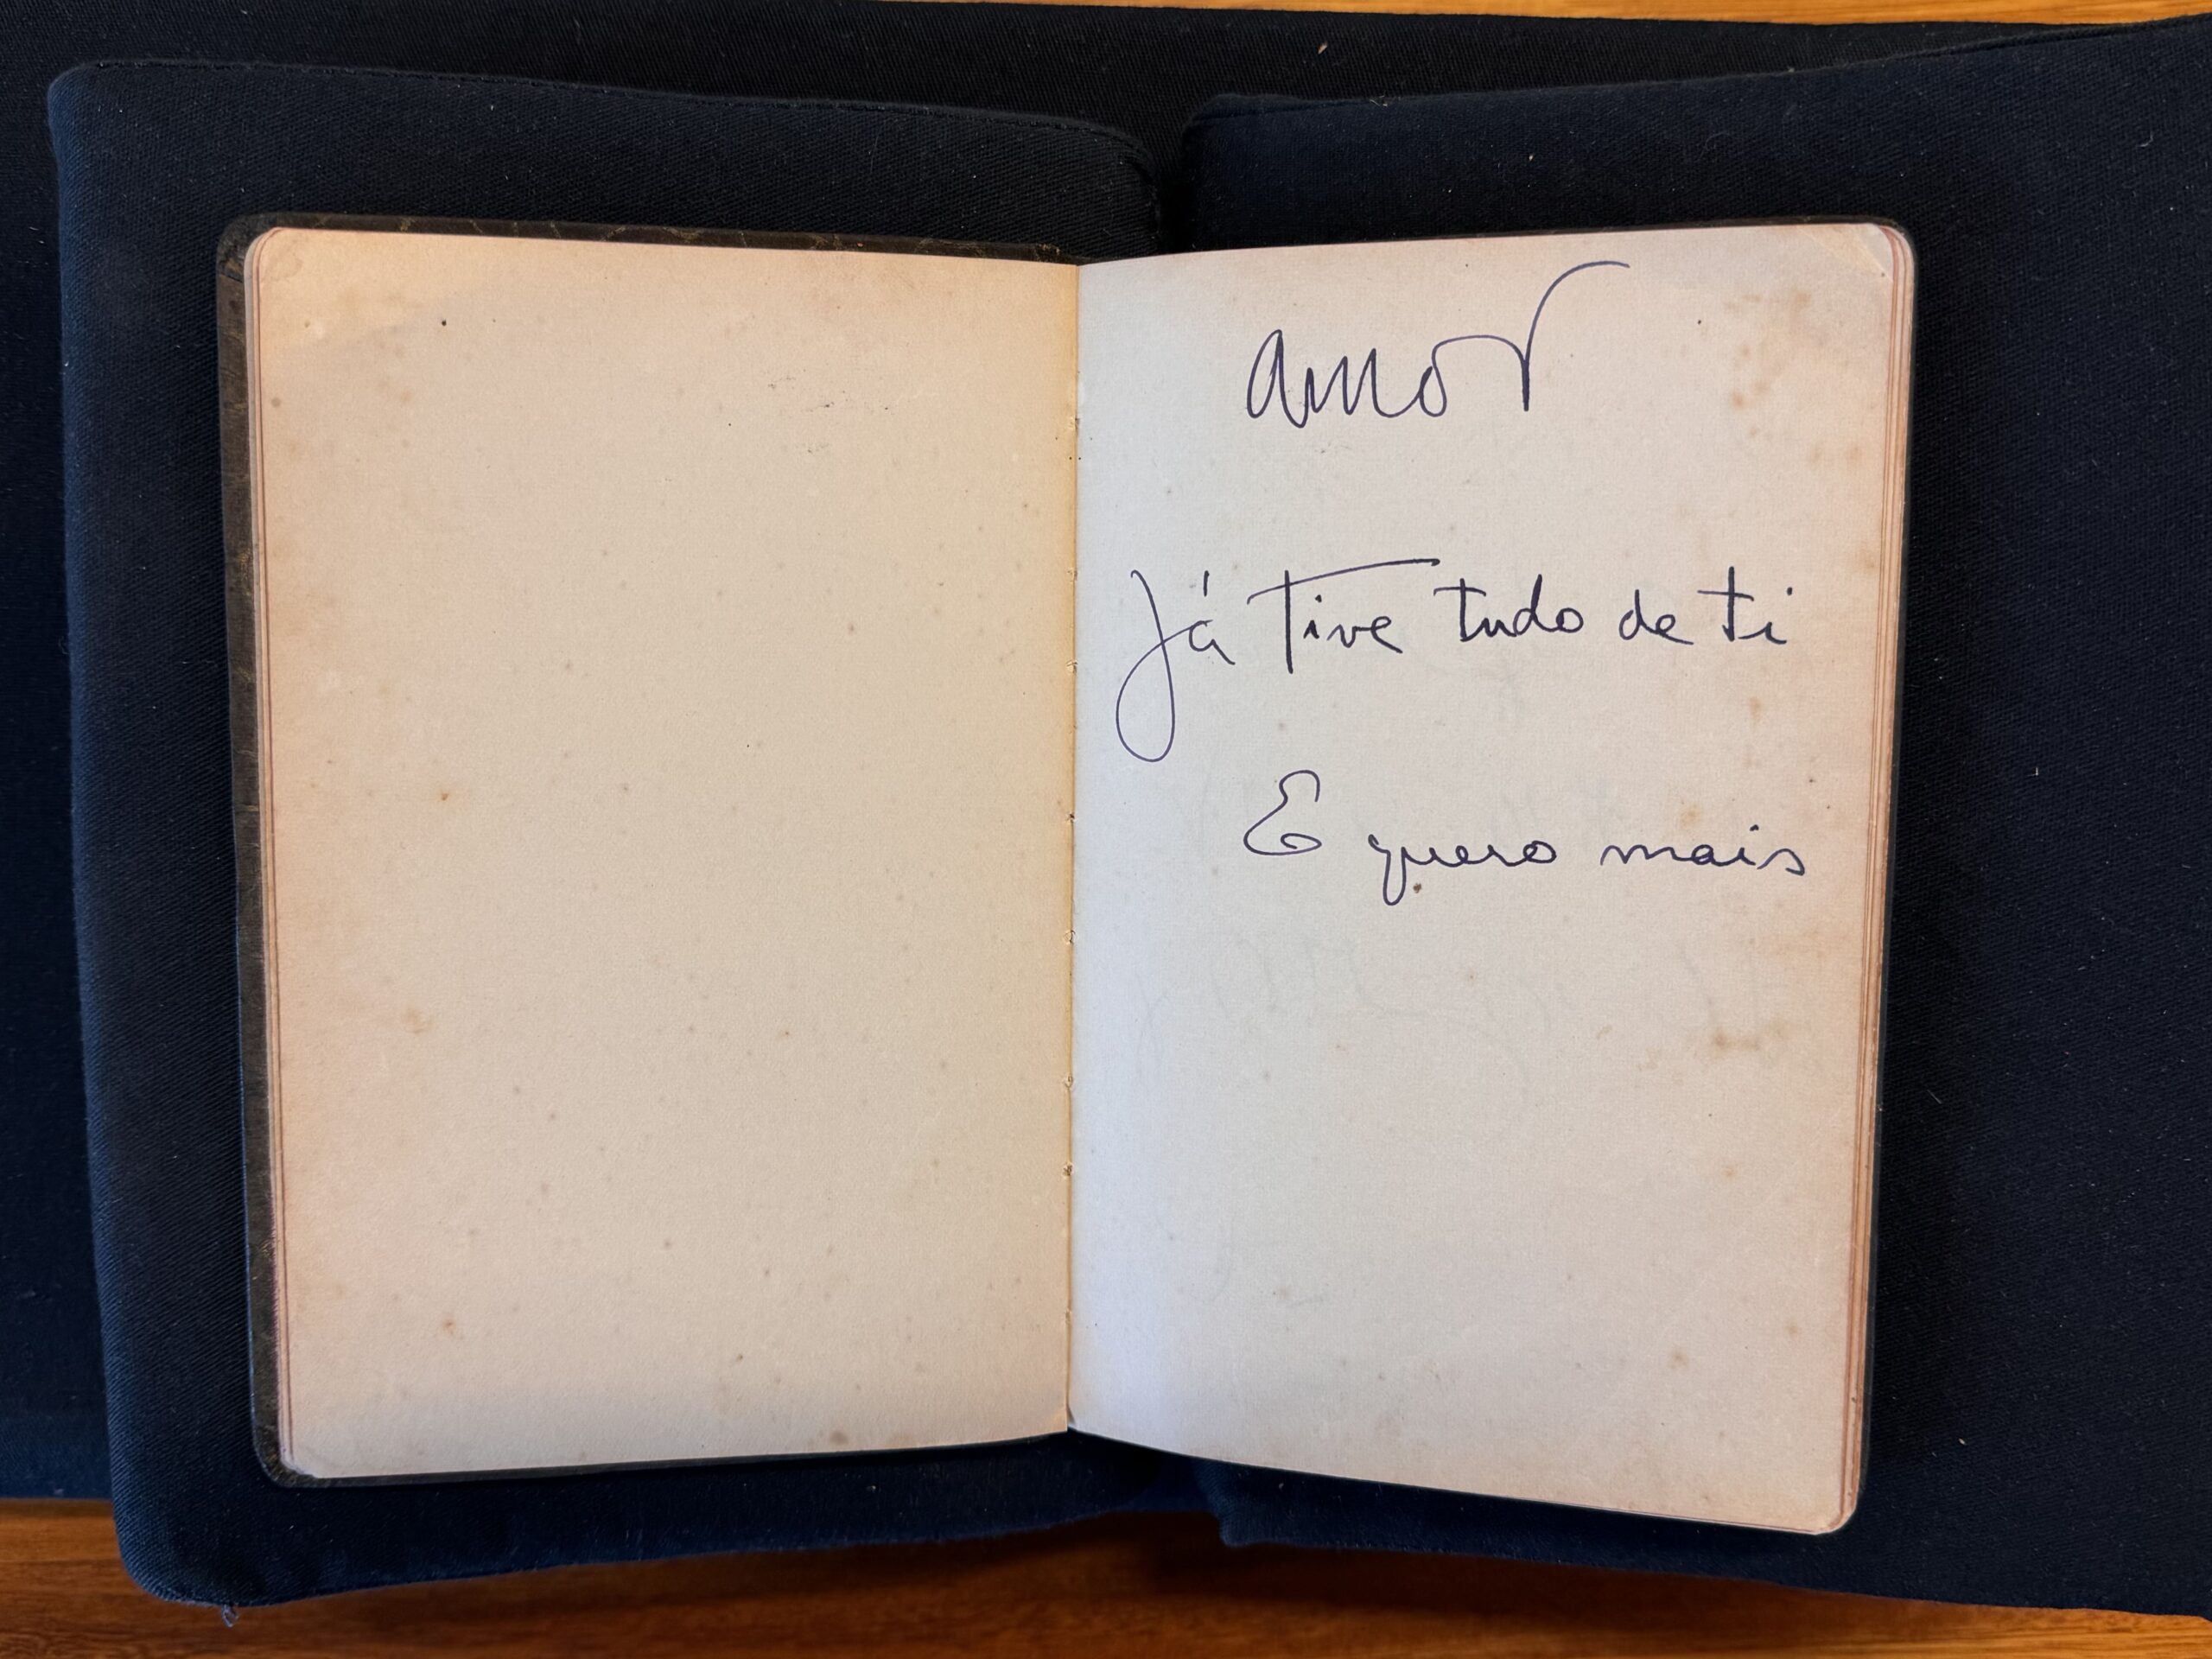 amor
Já Tive tudo de ti
E quero mais